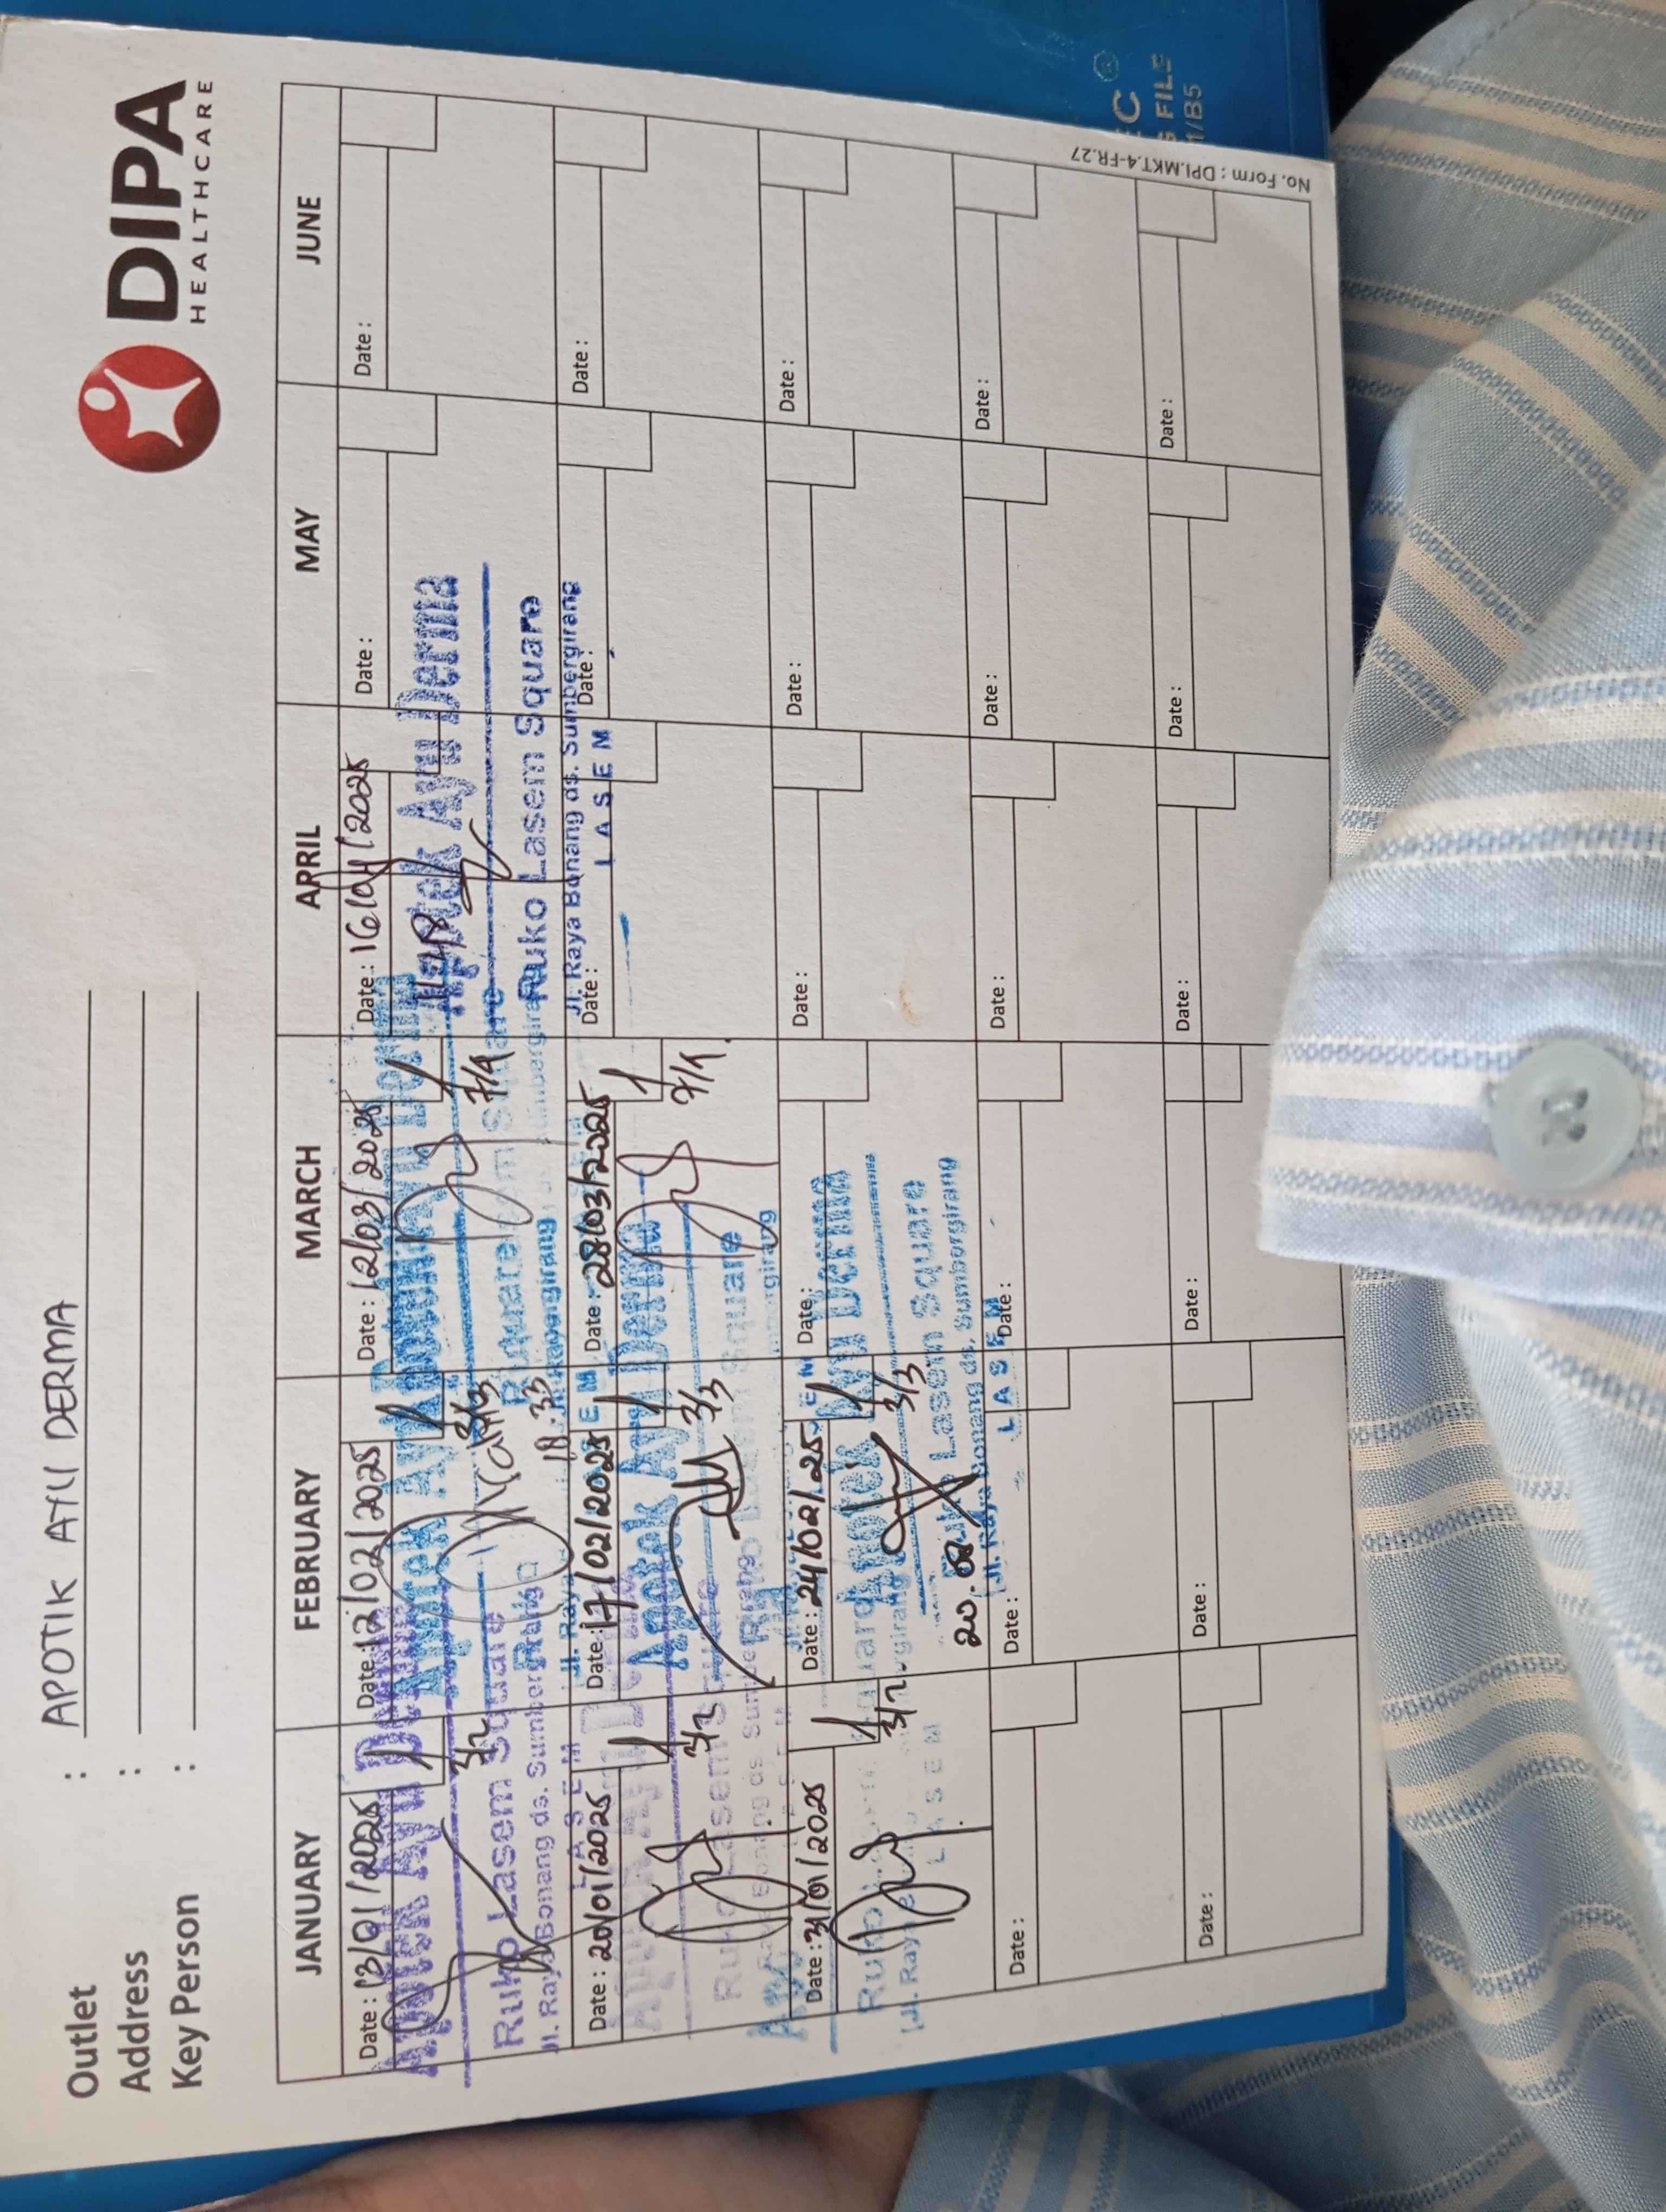 DIPA
HEALTHCARE
Outlet : APOTIK AYU DERMA
Address :
Key Person :
JANUARY FEBRUARY MARCH APRIL MAY JUNE
Date : 13/01/2025 Date : 12/02/2025 Date : 12/03/2025 Date : 16/04/2025 Date : Date :
Apotek Ayu Derma
3/2 3/3 7/4
Ruko Lasem Square
Jl. Raya Bonang ds. Sumbergirang
LASEM
18.33
Date : 20/01/2025 Date : 17/02/2025 Date : 28/03/2025 Date : Date : Date :
Apotek Ayu Derma
3/2 3/3 7/4
Ruko Lasem Square
Date : 31/01/2025 Date : 24/02/25 Date : Date : Date : Date :
Apotek Ayu Derma
3/2 3/3
Ruko Lasem Square
Jl. Raya Bonang ds. Sumbergirang
LASEM
Date : Date : Date : Date : Date : Date :
Date : Date : Date : Date : Date : Date :
No. Form : DPI.MKT.4-FR.27
FILE
/B5